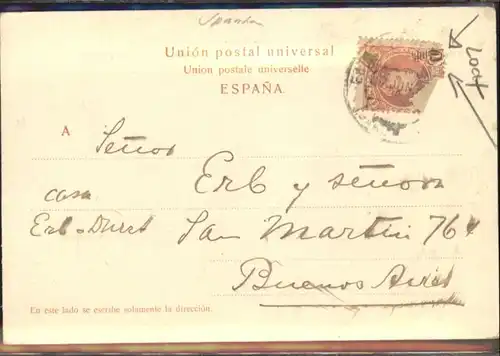 Unión postal universal
Union postale universelle
ESPAÑA.
A
Señor
Erb y señora
casa
Erb-Duret
San Martin 764
Buenos Aires
En este lado se escribe solamente la dirección.